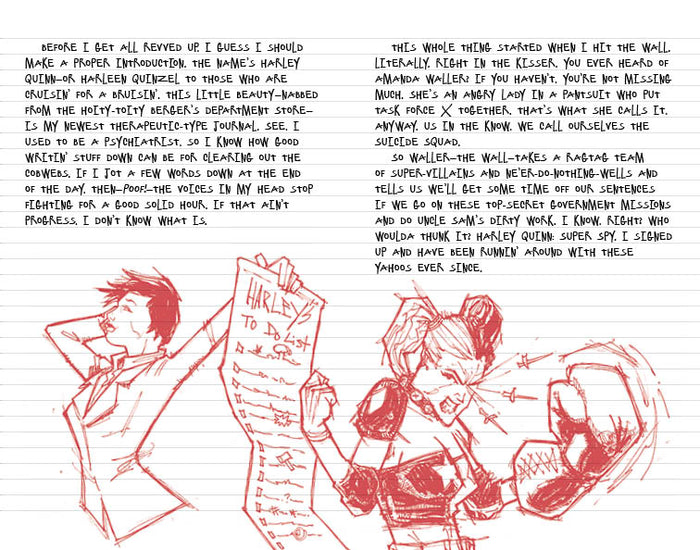 BEFORE I GET ALL REVVED UP, I GUESS I SHOULD
MAKE A PROPER INTRODUCTION. THE NAME'S HARLEY
QUINN—OR HARLEEN QUINZEL TO THOSE WHO ARE
CRUISIN' FOR A BRUISIN'. THIS LITTLE BEAUTY—NABBED
FROM THE HOITY-TOITY BERGER'S DEPARTMENT STORE—
IS MY NEWEST THERAPEUTIC-TYPE JOURNAL. SEE, I
USED TO BE A PSYCHIATRIST, SO I KNOW HOW GOOD
WRITIN' STUFF DOWN CAN BE FOR CLEARING OUT THE
COBWEBS. IF I JOT A FEW WORDS DOWN AT THE END
OF THE DAY, THEN—POOF!—THE VOICES IN MY HEAD STOP
FIGHTING FOR A GOOD SOLID HOUR. IF THAT AIN'T
PROGRESS, I DON'T KNOW WHAT IS.
THIS WHOLE THING STARTED WHEN I HIT THE WALL.
LITERALLY. RIGHT IN THE KISSER. YOU EVER HEARD OF
AMANDA WALLER? IF YOU HAVEN'T, YOU'RE NOT MISSING
MUCH. SHE'S AN ANGRY LADY IN A PANTSUIT WHO PUT
TASK FORCE X TOGETHER. THAT'S WHAT SHE CALLS IT,
ANYWAY. US IN THE KNOW, WE CALL OURSELVES THE
SUICIDE SQUAD.
SO WALLER—THE WALL—TAKES A RAGTAG TEAM
OF SUPER-VILLAINS AND NE'ER-DO-NOTHING-WELLS AND
TELLS US WE'LL GET SOME TIME OFF OUR SENTENCES
IF WE GO ON THESE TOP-SECRET GOVERNMENT MISSIONS
AND DO UNCLE SAM'S DIRTY WORK. I KNOW, RIGHT? WHO
WOULDA THUNK IT? HARLEY QUINN: SUPER SPY. I SIGNED
UP AND HAVE BEEN RUNNIN' AROUND WITH THESE
YAHOOS EVER SINCE.
HARLEY'S
TO DO LIST